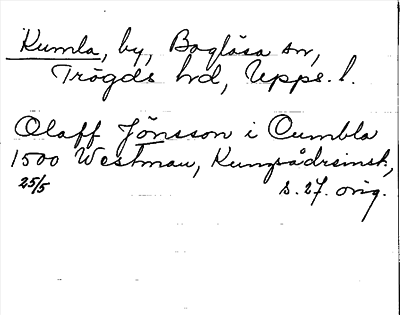 Kumla, by, Boglösa sn,
Trögds hd, Upps. l.
Olaff Jönsson i Cumbla
1500 Westman, Kungsådrsinsk,
25/5 s. 27. orig.